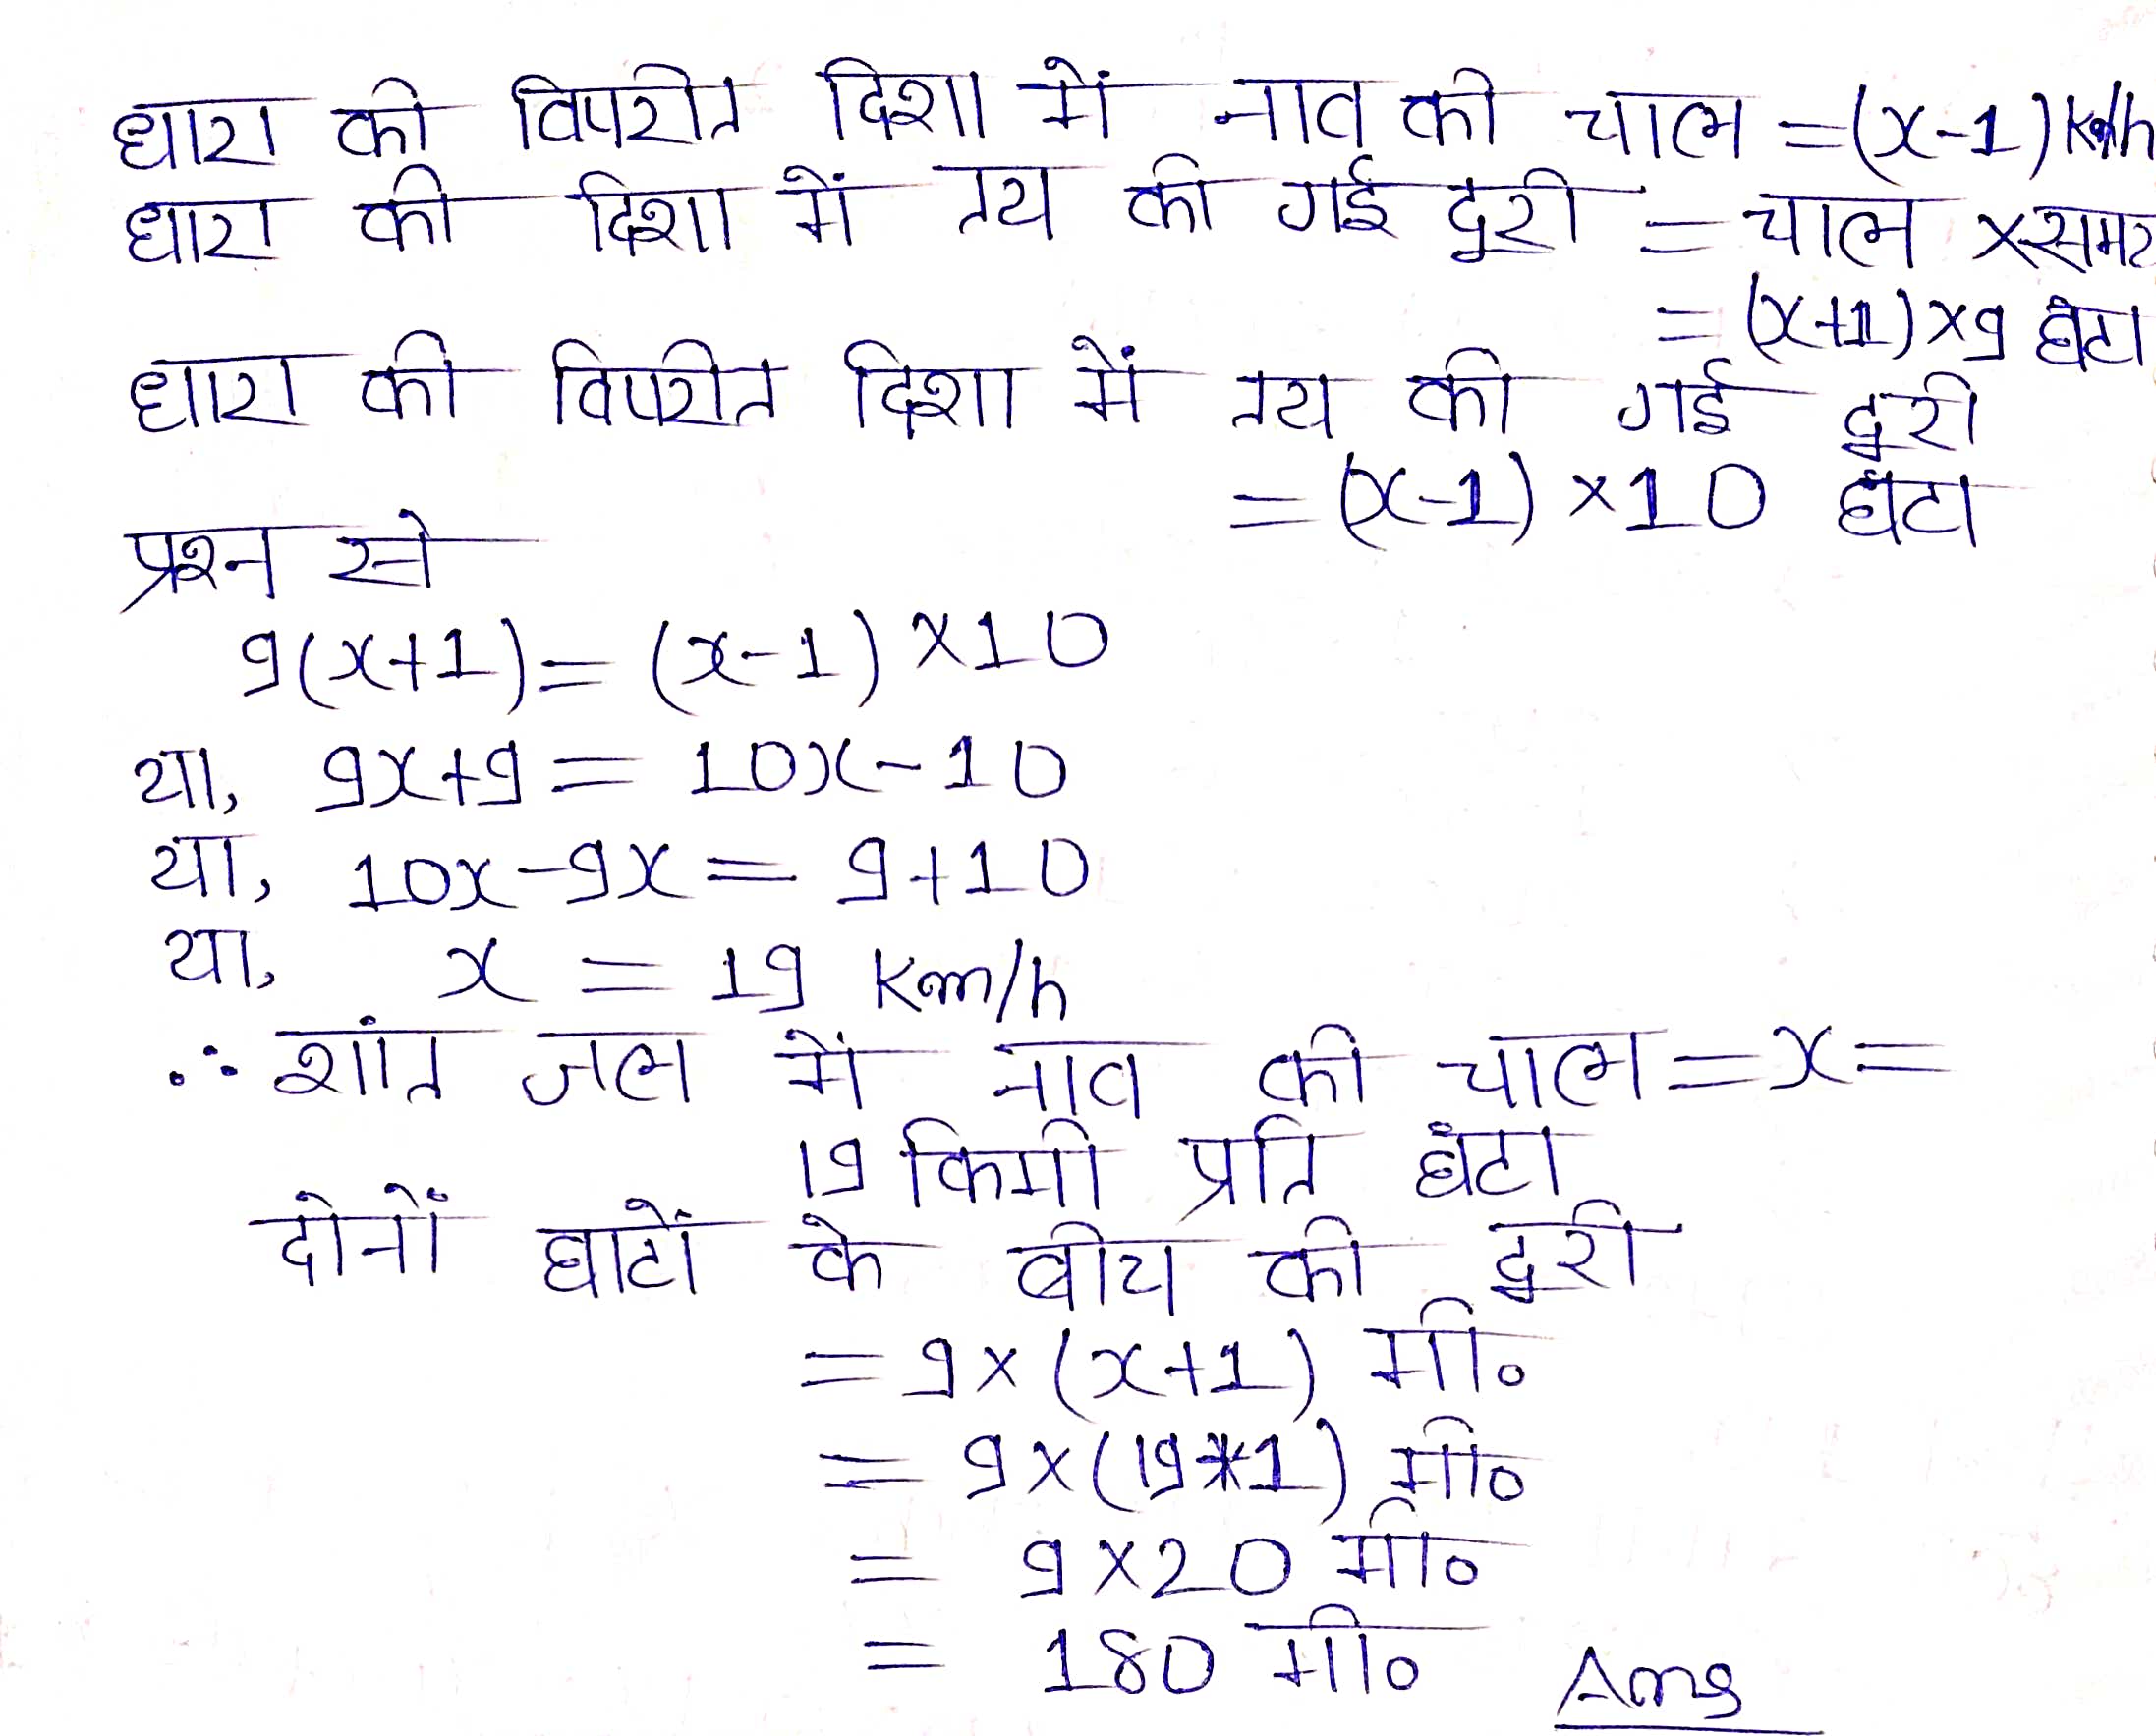 धारा की विपरीत दिशा में नाव की चाल =(x-1)km/h
धारा की दिशा में तय की गई दूरी = चाल ×समय
= (x+1)×9 घंटा
धारा की विपरीत दिशा में तय की गई दूरी
= (x-1) ×10 घंटा
प्रश्न से
9(x+1)= (x-1) ×10
या, 9x+9 = 10x-10
या, 10x-9x = 9+10
या, x = 19 Km/h
∴ शांत जल में नाव की चाल =x=
19 किमी प्रति घंटा
दोनों घाटों के बीच की दूरी
= 9×(x+1) मी०
= 9×(19+1) मी०
= 9×20 मी०
= 180 मी० Ans